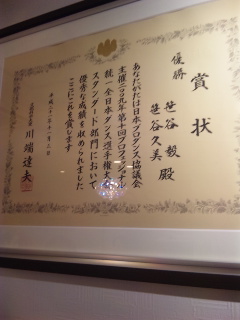 賞状
優勝
笹谷 毅
笹谷久美 殿
あなたがたは日本プロダンス協議会
主催二〇〇九年第十回プロフェッショナル
統一全日本ダンス選手権大会
スタンダード部門において
優秀な成績を収められました
ここにこれを賞します
川端達夫